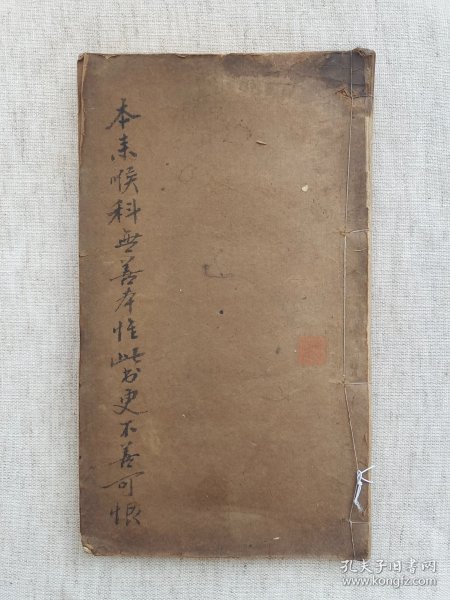 本来喉科無善本惟此書更不善可恨
孔夫子旧书网
www.kongfz.com